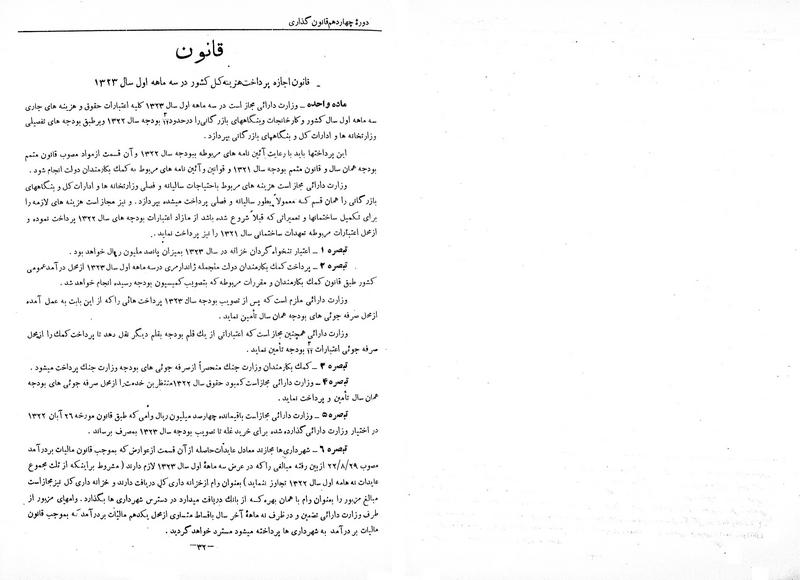 دورهٔ چهاردهم قانون گذاری
قانون
ـ قانون اجازه پرداخت هزینه کل کشور در سه ماهه اول سال ۱۳۲۳
ماده واحده ـ وزارت دارائی مجاز است در سه ماهه اول سال ۱۳۲۳ کلیه اعتبارات حقوق و هزینه های جاری
سه ماهه اول سال کشور و کارخانجات و بنگاههای بازرگانی را در حدود بودجه سال ۱۳۲۲ و بر طبق بودجه های تفصیلی
وزارتخانه ها و ادارات کل و بنگاههای بازرگانی بپردازد .
این پرداختها باید با رعایت آئین نامه های مربوطه ببودجه سال ۱۳۲۲ و آن قسمت از مواد مصوب قانون متمم
بودجه همان سال و قانون متمم بودجه سال ۱۳۲۱ و قوانین و آئین نامه های مربوط به کمک بکارمندان دولت انجام شود .
وزارت دارائی مجاز است هزینه های مربوط باحتیاجات سالیانه و فصلی وزارتخانه ها و ادارات کل و بنگاههای
بازرگانی را همان قسم که معمولاً بطور سالیانه و فصلی پرداخت میشده بپردازد . و نیز مجاز است هزینه های لازمه را
برای تکمیل ساختمانها و تعمیراتی که قبلاً شروع شده باشد از مازاد اعتبارات بودجه های سال ۱۳۲۲ پرداخت نموده و
از محل اعتبارات مربوطه تعهدات ساختمانی سال ۱۳۲۱ را نیز پرداخت نماید .
تبصره ۱ ـ اعتبار تنخواه گردان خزانه در سال ۱۳۲۳ بمیزان پانصد ملیون ریال خواهد بود .
تبصره ۲ ـ پرداخت کمک بکارمندان دولت منجمله ژاندارمری در سه ماهه اول سال ۱۳۲۳ از محل درآمد عمومی
کشور طبق قانون کمک بکارمندان و مقررات مربوطه که بتصویب کمیسیون بودجه رسیده انجام خواهد شد .
وزارت دارائی ملزم است که پس از تصویب بودجه سال ۱۳۲۳ پرداخت هائی را که از این بابت به عمل آمده
از محل صرفه جوئی های بودجه همان سال تأمین نماید .
وزارت دارائی همچنین مجاز است که اعتباراتی از یک قلم بودجه بقلم دیگر نقل دهد تا پرداخت کمک را از محل
صرفه جوئی اعتبارات بودجه تأمین نماید .
تبصره ۳ ـ کمک بکارمندان وزارت جنگ منحصراً از صرفه جوئی های بودجه وزارت جنگ پرداخت میشود .
تبصره ۴ ـ وزارت دارائی مجاز است کمبود حقوق سال ۱۳۲۲ منتظرین خدمت را از محل صرفه جوئی های بودجه
همان سال تأمین و پرداخت نماید .
تبصره ۵ ـ وزارت دارائی مجاز است باقیمانده چهارصد میلیون ریال وامی که طبق قانون مورخه ۲۶ آبان ۱۳۲۲
در اختیار وزارت دارائی گذارده شده برای خرید غله تا تصویب بودجه سال ۱۳۲۳ بمصرف برساند .
تبصره ۶ ـ شهرداری ها مجازند معادل عایدات حاصله از آن قسمت از عوارض که بموجب قانون مالیات بر درآمد
مصوب ۲۲/۸/۲۹ از بین رفته مبالغی را که در عرض سه ماههٔ اول سال ۱۳۲۳ لازم دارند ( مشروط بر اینکه از ثلث مجموع
عایدات نه ماهه اول سال ۱۳۲۲ تجاوز ننماید ) بعنوان وام از خزانه داری کل دریافت دارند و خزانه داری کل نیز مجاز است
مبالغ مزبور را بعنوان وام با همان بهره که از بانک دریافت میدارد در دسترس شهرداری ها بگذارد . وامهای مزبور از
طرف وزارت دارائی تضمین و در ظرف نه ماههٔ آخر سال باقساط متساوی از محل یکدهم مالیات بر درآمد که بموجب قانون
مالیات بر درآمد به شهرداری ها پرداخته میشود مسترد خواهد گردید .
ـ۳۲ـ